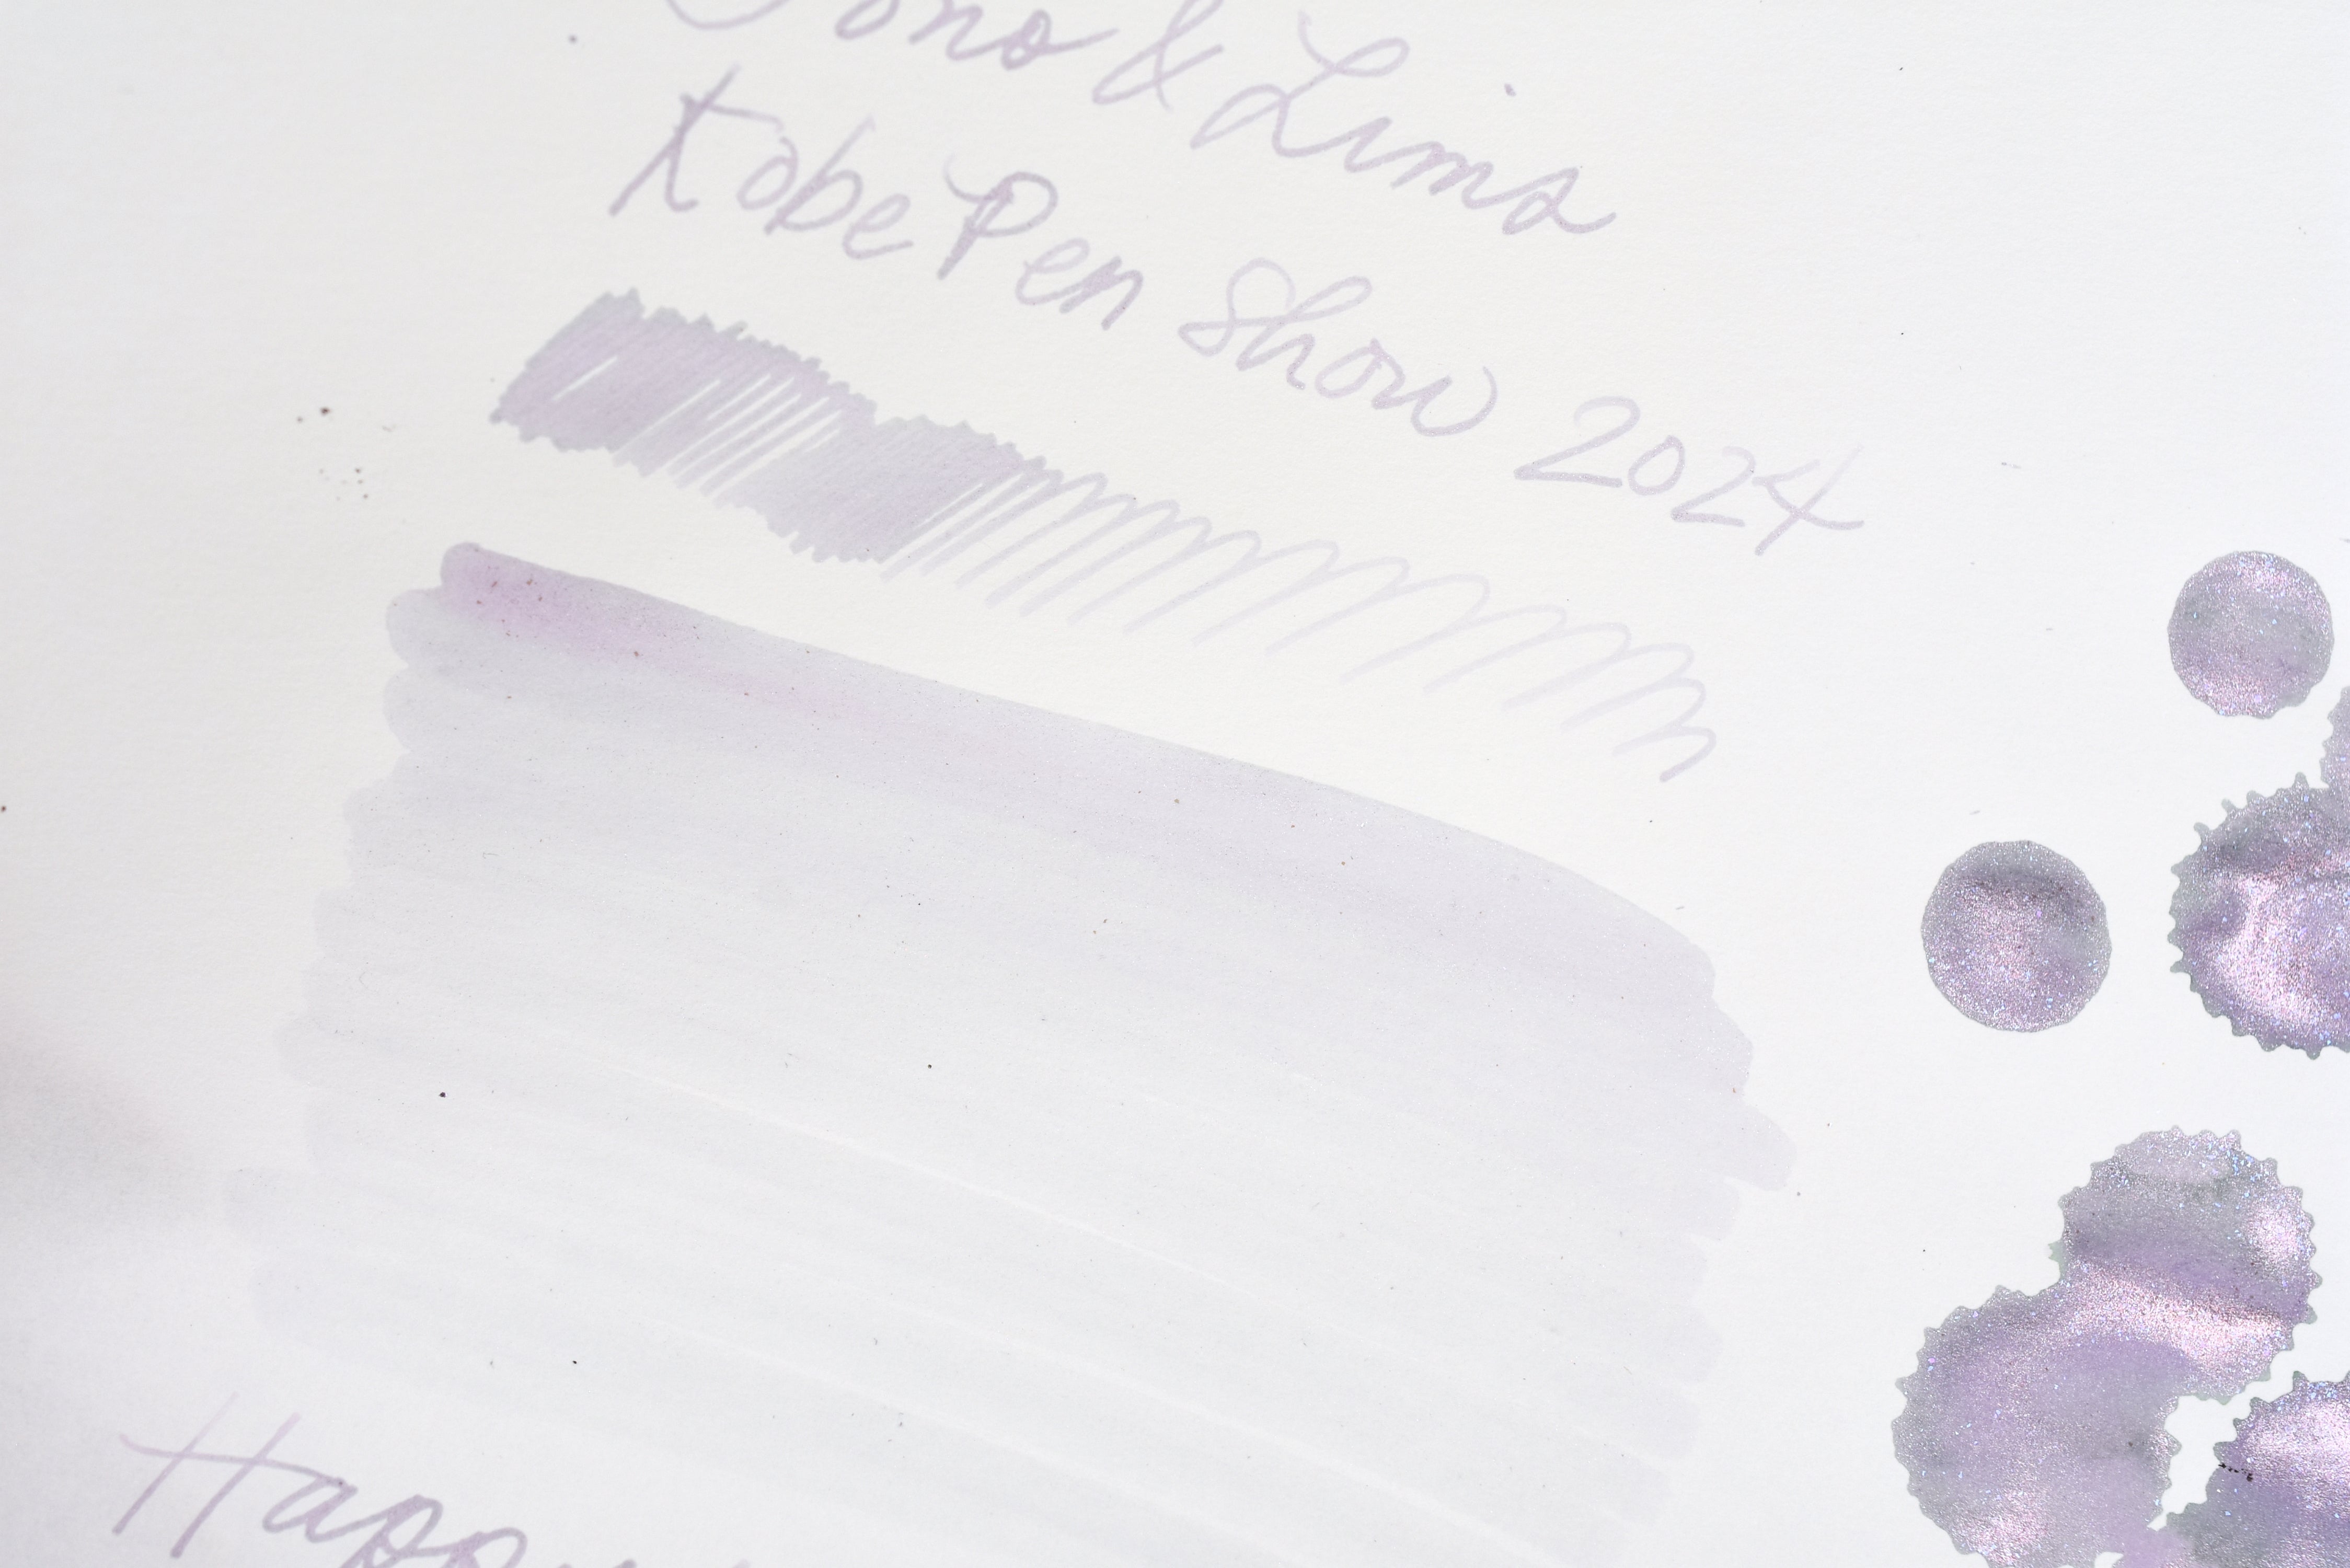 Tono & Lims
Kobe Pen Show 2024
Happy